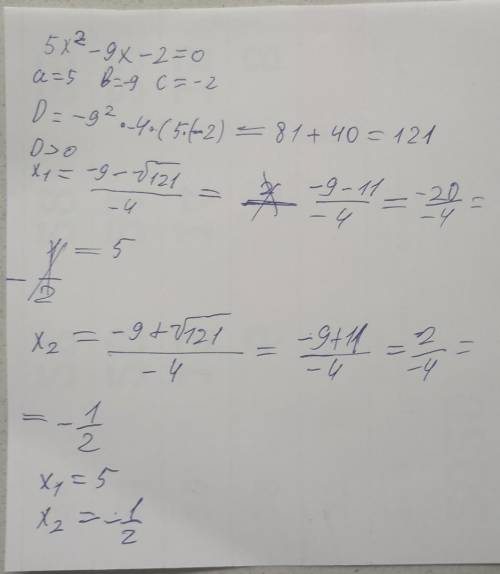 5x² - 9x - 2 = 0
a = 5 b = -9 c = -2
D = -9² · -4 · (5·(-2) = 81 + 40 = 121
D > 0
x₁ = (-9 - √121)/(-4) = (-9 - 11)/(-4) = (-20)/(-4) =
= 5
x₂ = (-9 + √121)/(-4) = (-9 + 11)/(-4) = 2/(-4) =
= -1/2
x₁ = 5
x₂ = -1/2